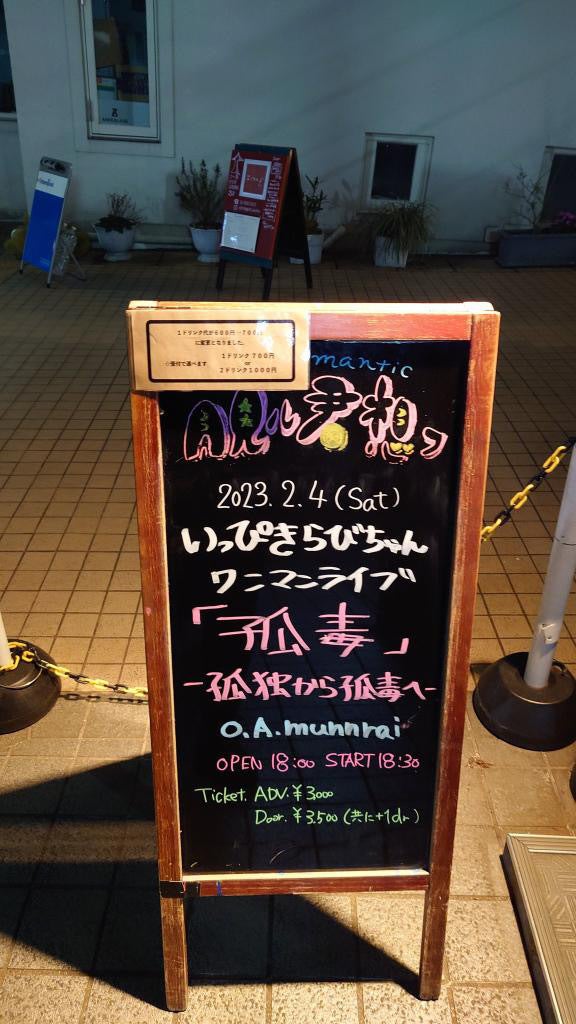 1ドリンク代が600円→700円
に変更となりました。
☆受付で選べます
1ドリンク 700円
or
2ドリンク1000円
mantic
2023.2.4(Sat)
いっぴきらびちゃん
ワニマンライブ
「孤毒」
-孤独から孤毒へ-
O.A.munnrai
OPEN 18:00 START 18:30
Ticket. ADV.¥3000
Door.¥3,500(共に+1dr)